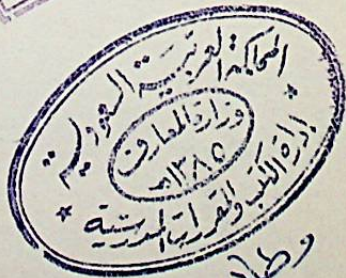 المملكة العربية السعودية
وزارة المعارف
١٣٨٥هـ
إدارة الكتب والمقررات المدرسية